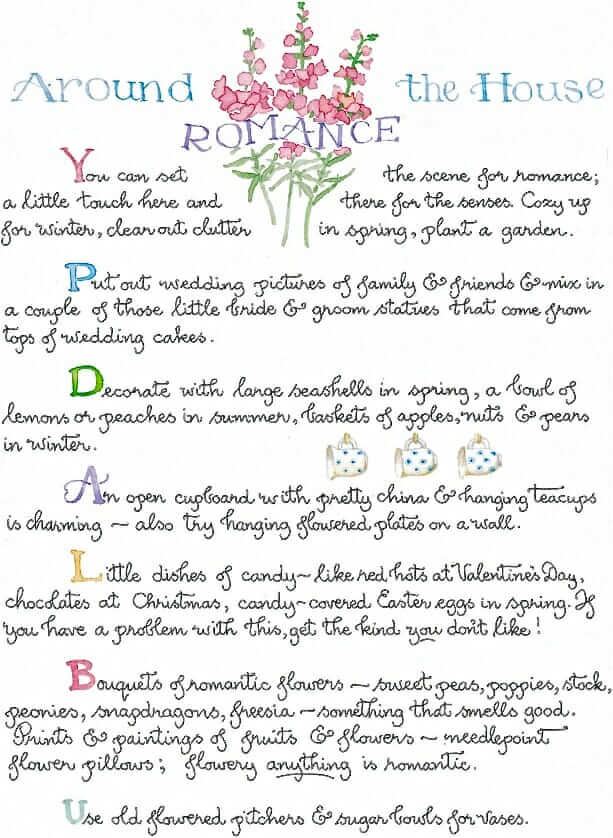 Around the House
ROMANCE
You can set the scene for romance;
a little touch here and there for the senses. Cozy up
for winter, clear out clutter in spring, plant a garden.
Put out wedding pictures of family & friends & mix in
a couple of those little bride & groom statues that come from
tops of wedding cakes.
Decorate with large seashells in spring, a bowl of
lemons or peaches in summer, baskets of apples, nuts & pears
in winter.
An open cupboard with pretty china & hanging teacups
is charming ~ also try hanging flowered plates on a wall.
Little dishes of candy ~ like red hots at Valentine's Day,
chocolates at Christmas, candy-covered Easter eggs in spring. If
you have a problem with this, get the kind you don't like!
Bouquets of romantic flowers ~ sweet peas, poppies, stock,
peonies, snapdragons, freesia ~ something that smells good.
Prints & paintings of fruits & flowers ~ needlepoint
flower pillows; flowery anything is romantic.
Use old flowered pitchers & sugar bowls for vases.